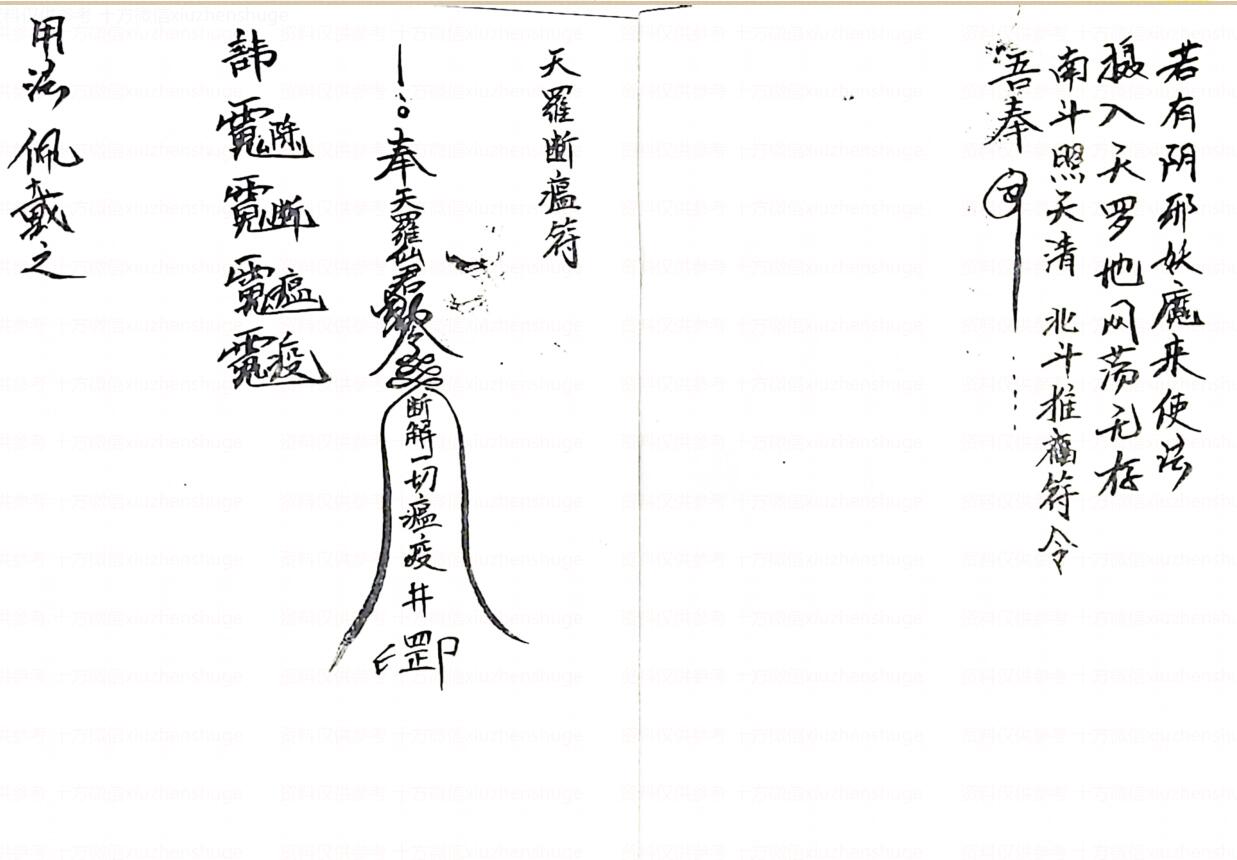 若有阴邪妖魔来使法
摄入天罗地网荡无存
南斗照天清 北斗推 符令
吾奉
天羅断瘟符
奉天羅
令
断解一切瘟疫井
罡印
諱
除
断
瘟
疫
用法佩戴之
资料仅供参考 十方微信xiuzhenshuge